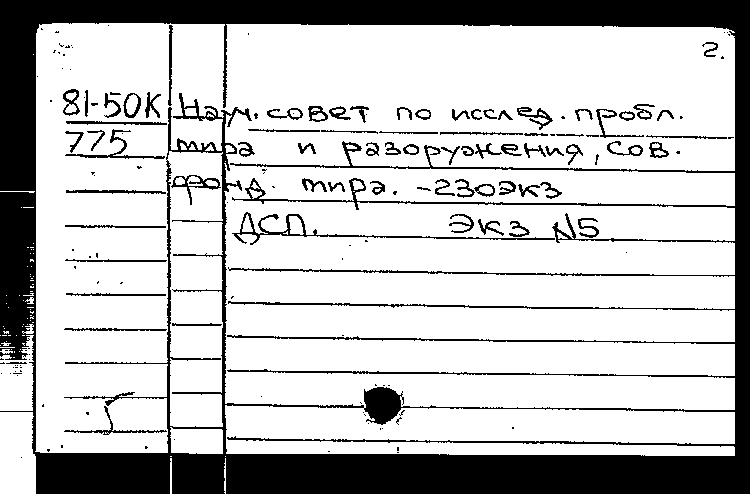 2.
81-50К Науч. совет по исслед. пробл.
775 мира и разоружения, Сов.
фонд. мира. -230экз
ДСП. Экз №5
5